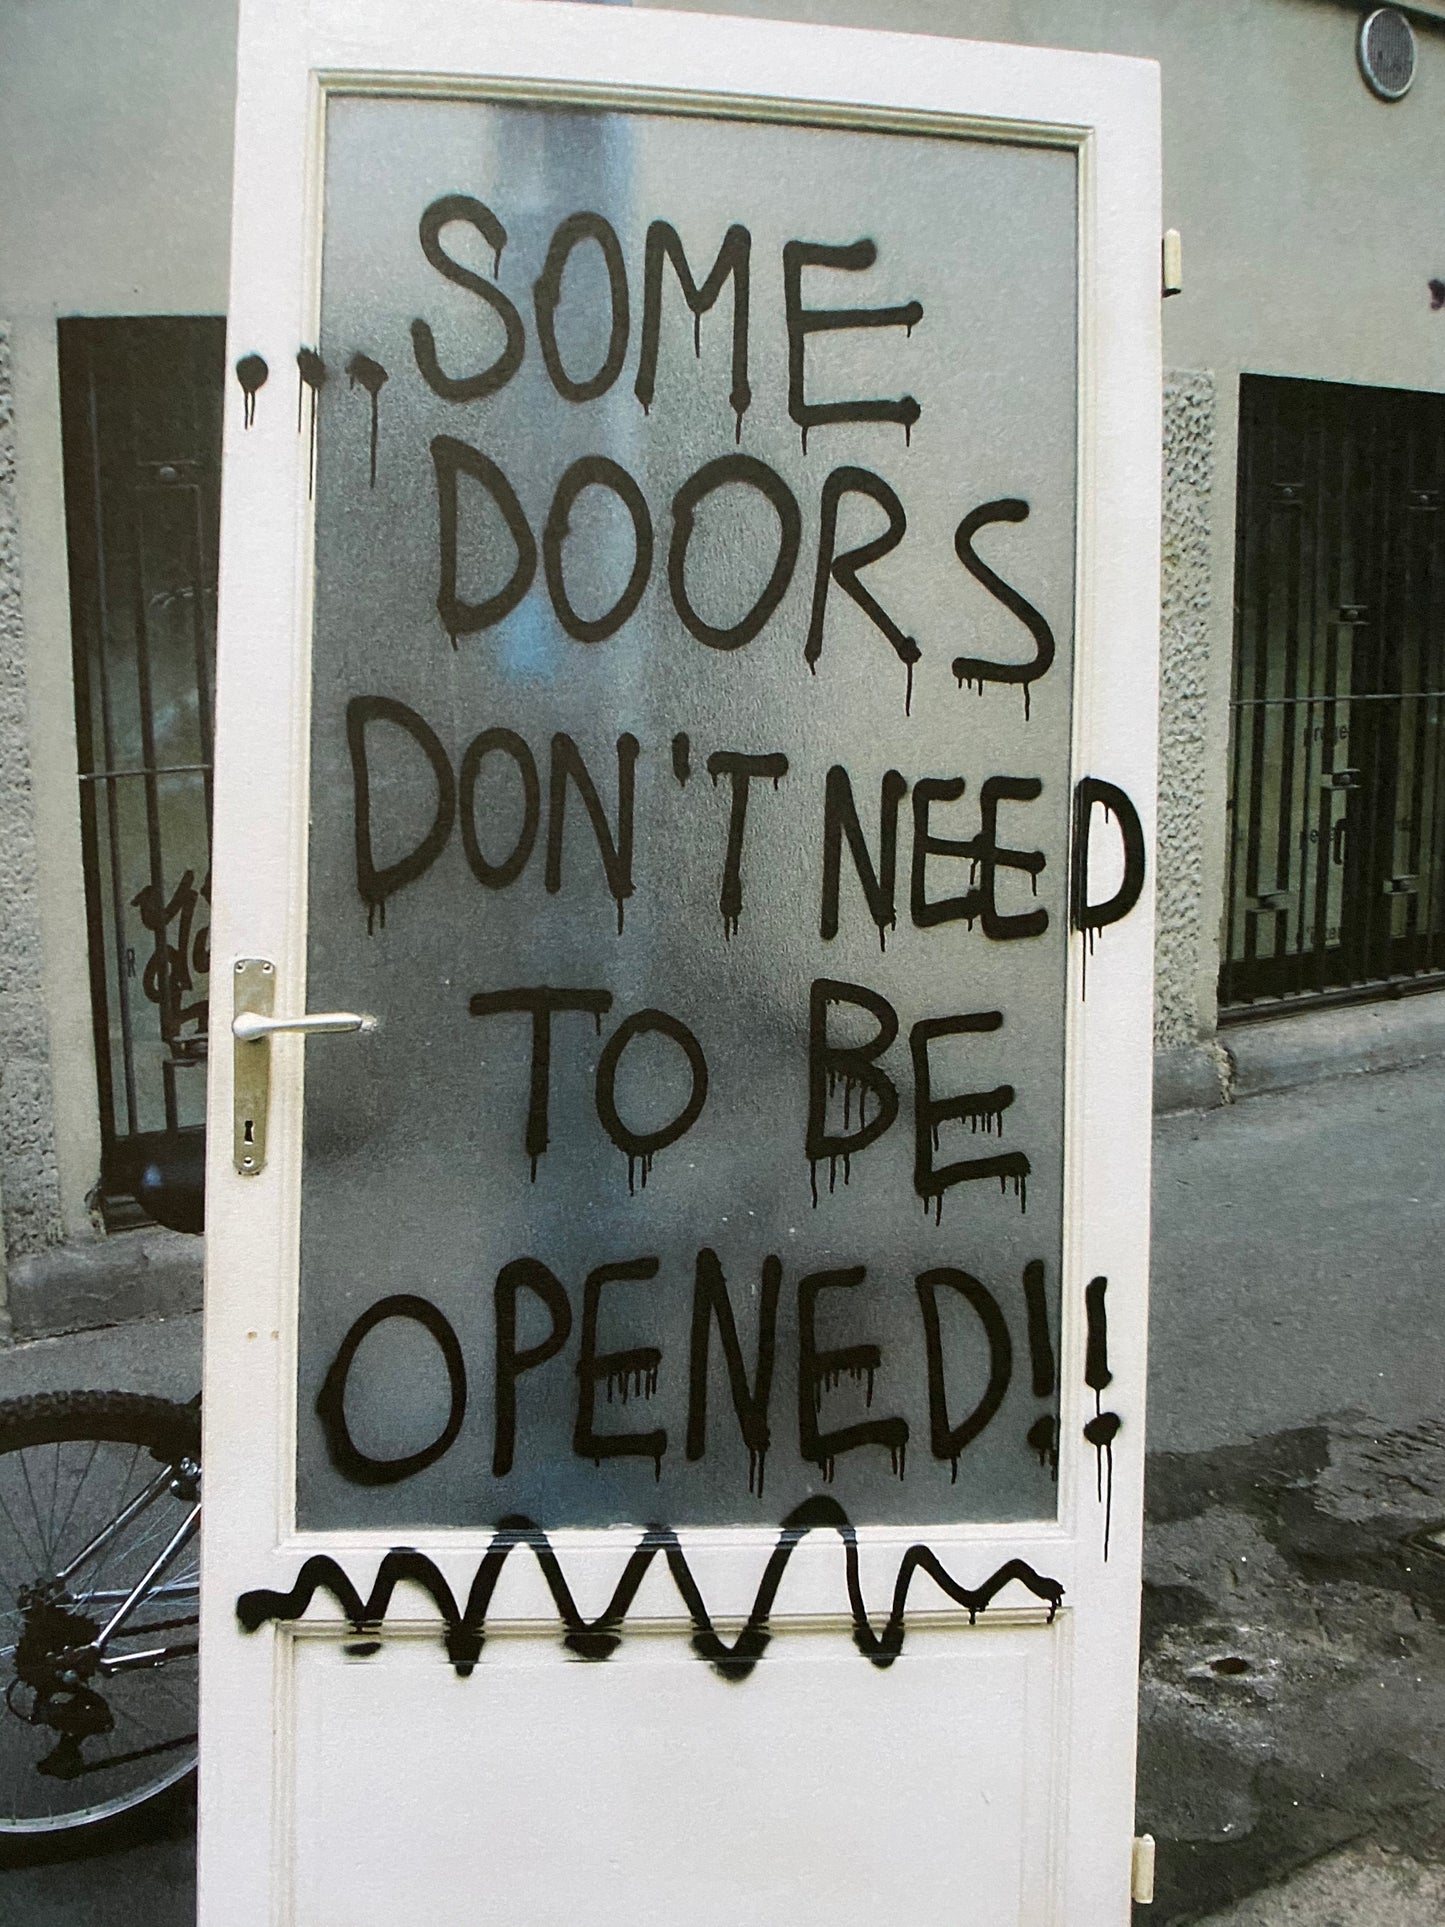 ...SOME
DOORS
DON'T NEED
TO BE
OPENED!!